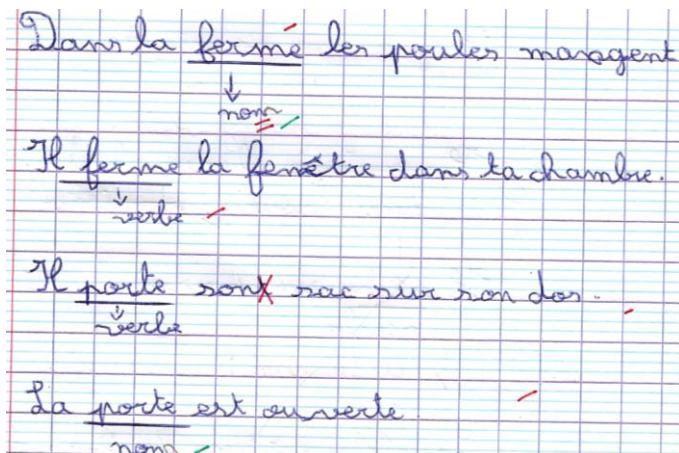 Dans la fermé les poules mangent
↓
nom
Il ferme la fenêtre dans ta chambre.
↓
verbe
Il porte sont sac sur son dos.
↓
verbe
La porte est ouverte.
nom